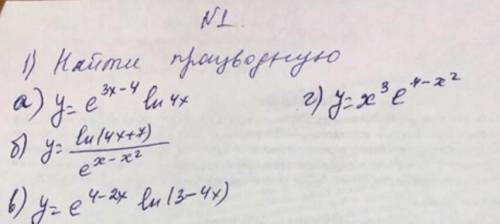 №1.
1) Найти производную
а) y = e^{3x-4} ln 4x
б) y = \frac{ln(4x+x)}{e^{x-x^2}}
в) y = e^{4-2x} ln(3-4x)
г) y = x^3 e^{4-x^2}